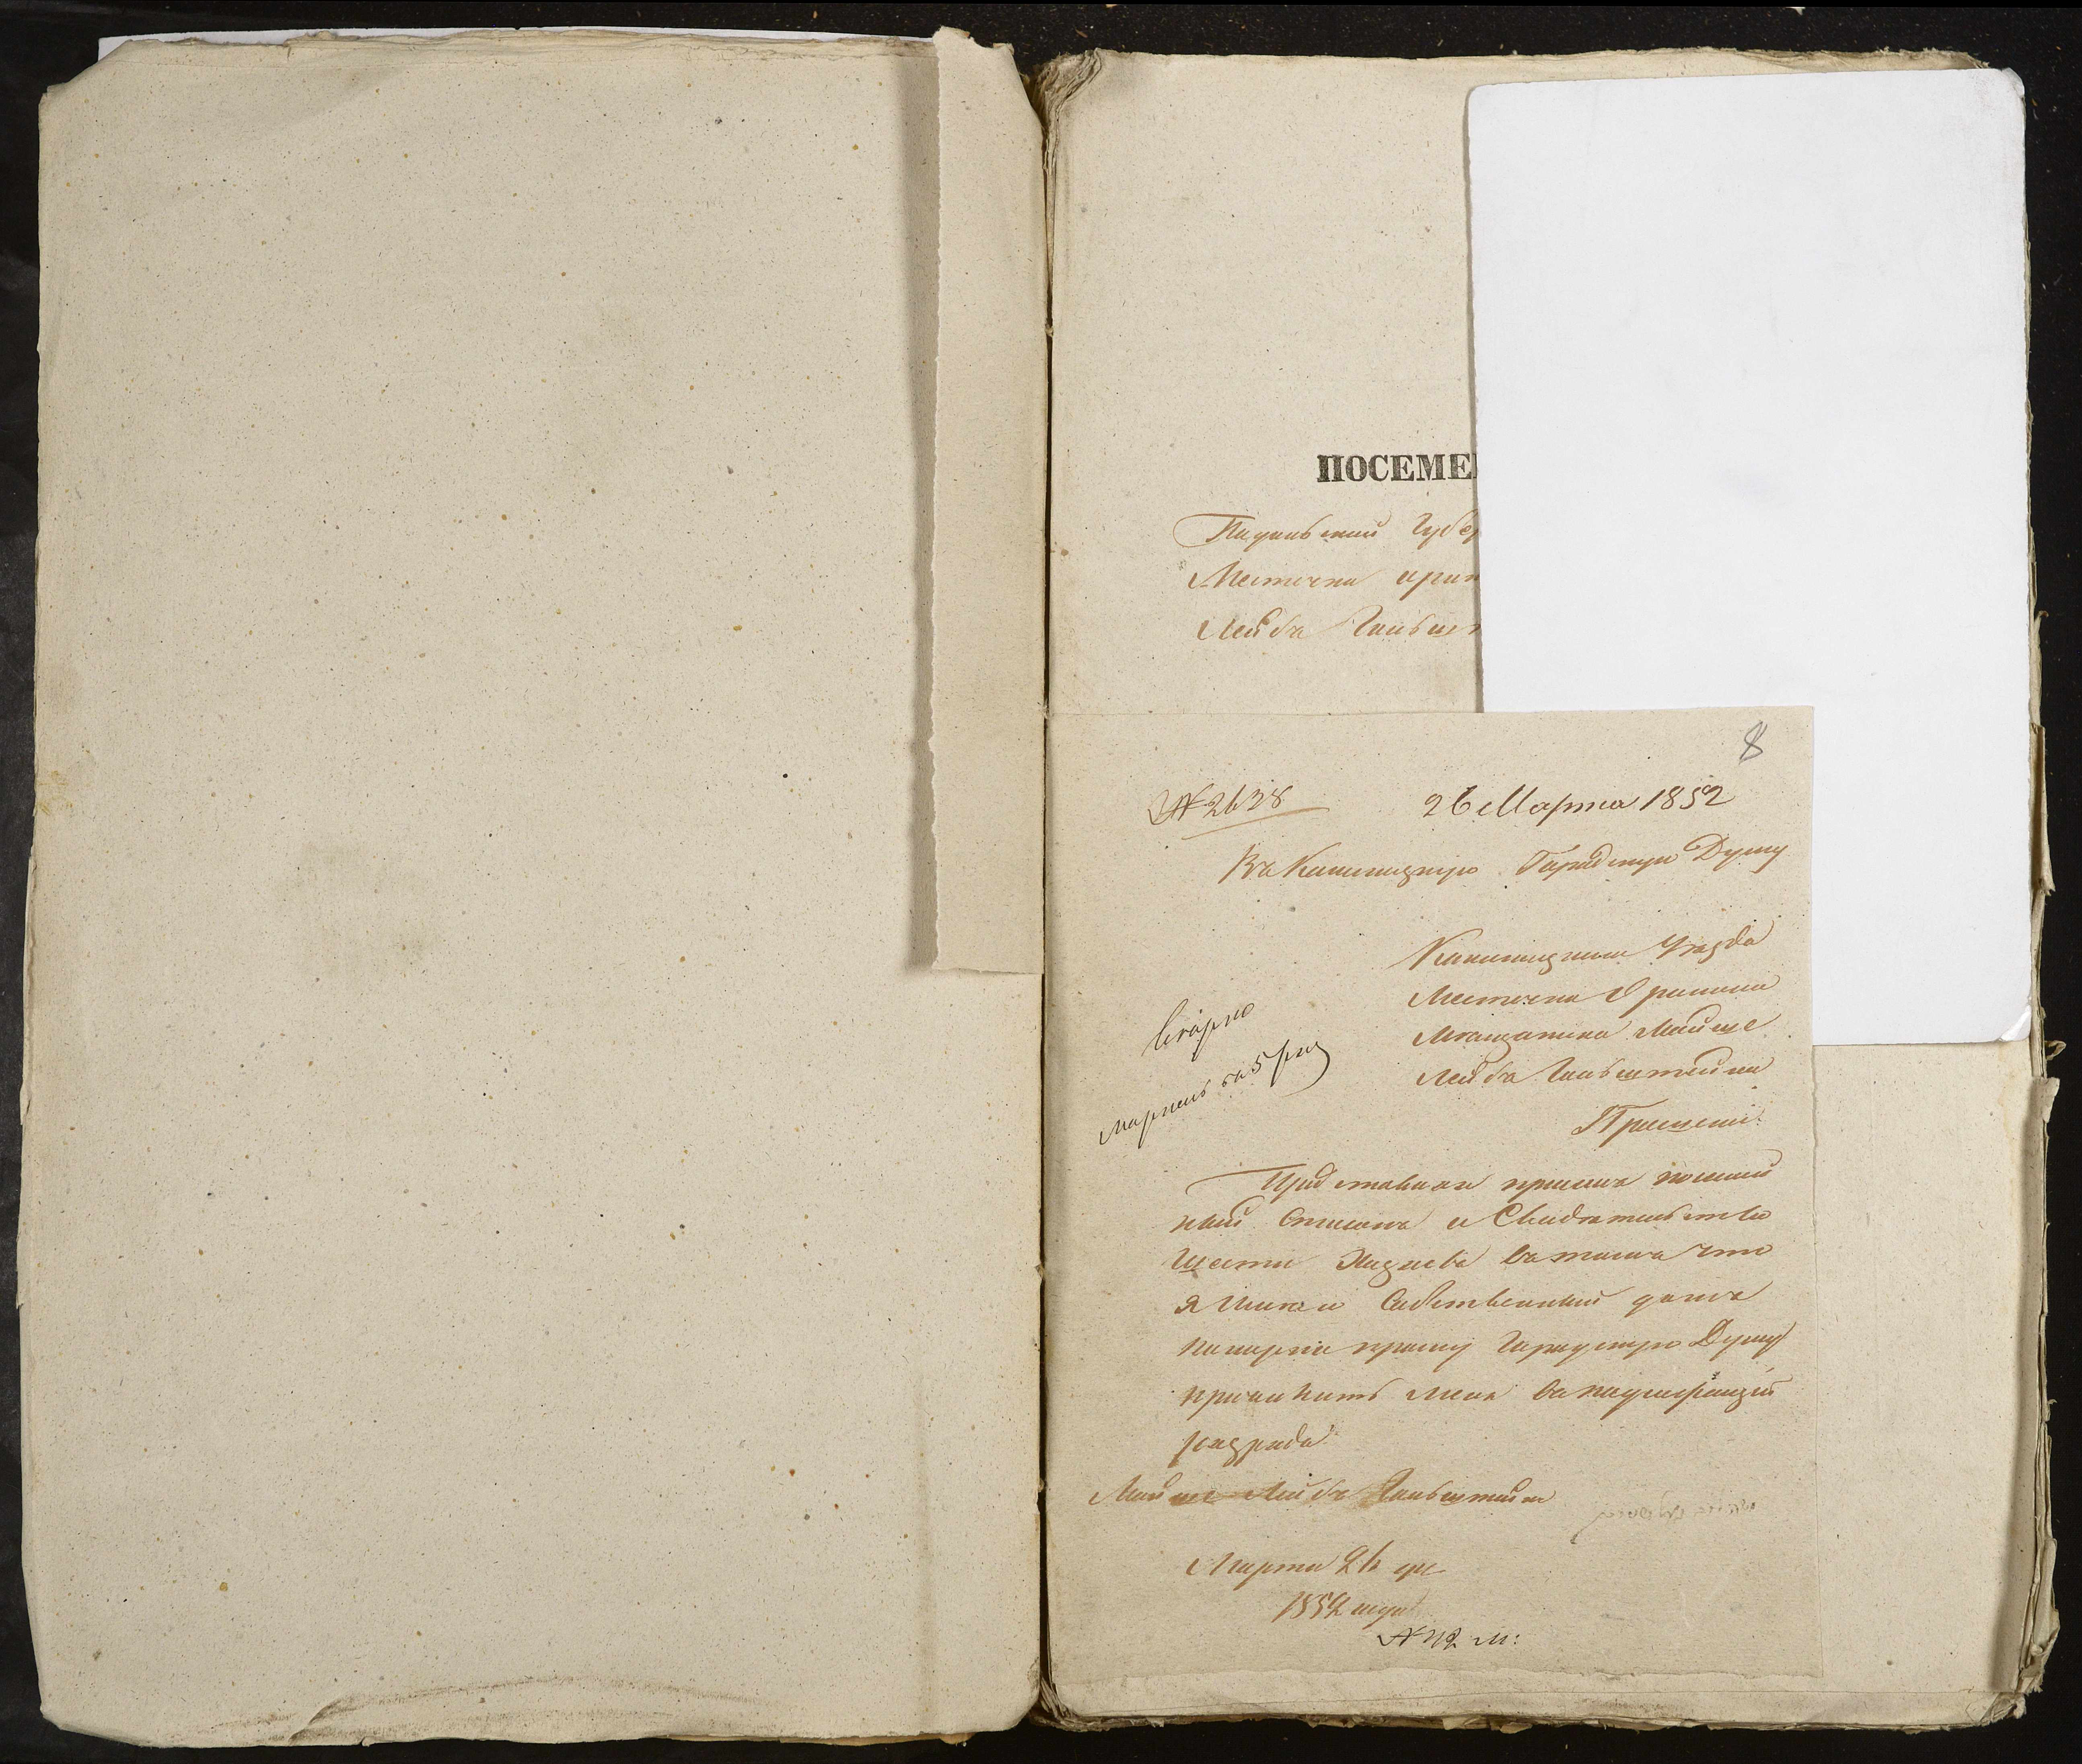 ПОСЕМЕ
Падольский Губер
Местечка
Лейба Гольшт
8
№ 2638
26 Марта 1852
Въ Каменицкую Гарадскую Думу
Каменицкаи Уезда
Местечка
Мещанина Мойше
Лейба Гольштейна
Прошении
Представляя при семъ посемей
ный Списокъ и Свидетельство
шести Хазяевъ въ томъ что
я имею Собственный домъ
пакорне прошу Гарадскую Думу
причислить меня
разрядъ
Мойше Лейба Гольштейн
Марта 26 дн
1852 года
№ 42 м: